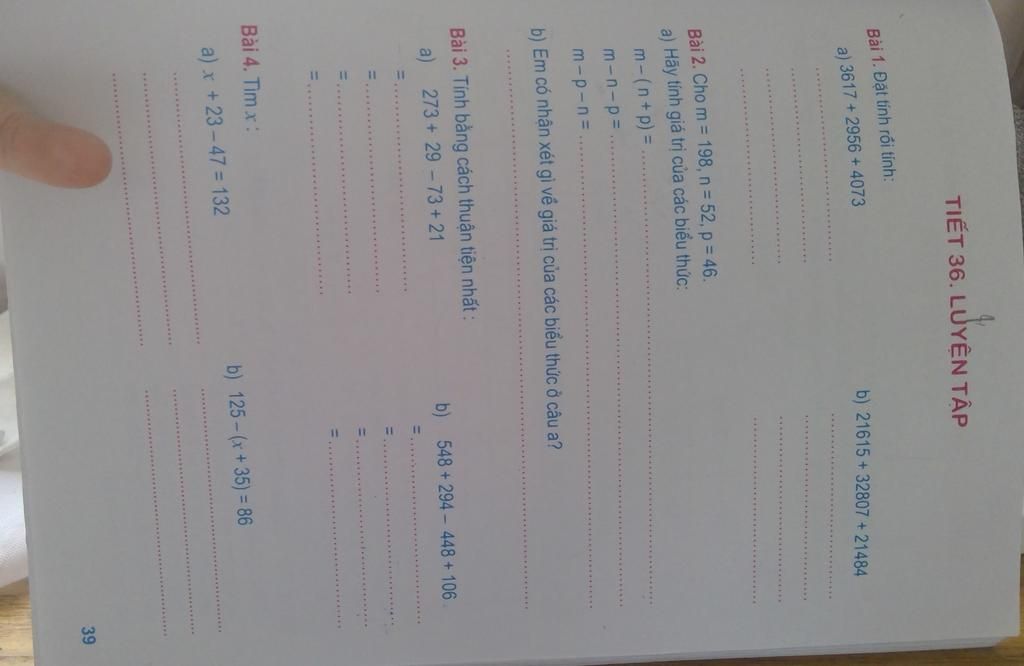 TIẾT 36. LUYỆN TẬP
Bài 1. Đặt tính rồi tính:
a) 3617 + 2956 + 4073 b) 21615 + 32807 + 21484
Bài 2. Cho m = 198, n = 52, p = 46.
a) Hãy tính giá trị của các biểu thức:
m – ( n + p) =
m – n – p =
m – p – n =
b) Em có nhận xét gì về giá trị của các biểu thức ở câu a?
Bài 3. Tính bằng cách thuận tiện nhất :
a) 273 + 29 – 73 + 21 b) 548 + 294 – 448 + 106
= =
= =
= =
= =
Bài 4. Tìm x :
a) x + 23 – 47 = 132 b) 125 – (x + 35) = 86
39